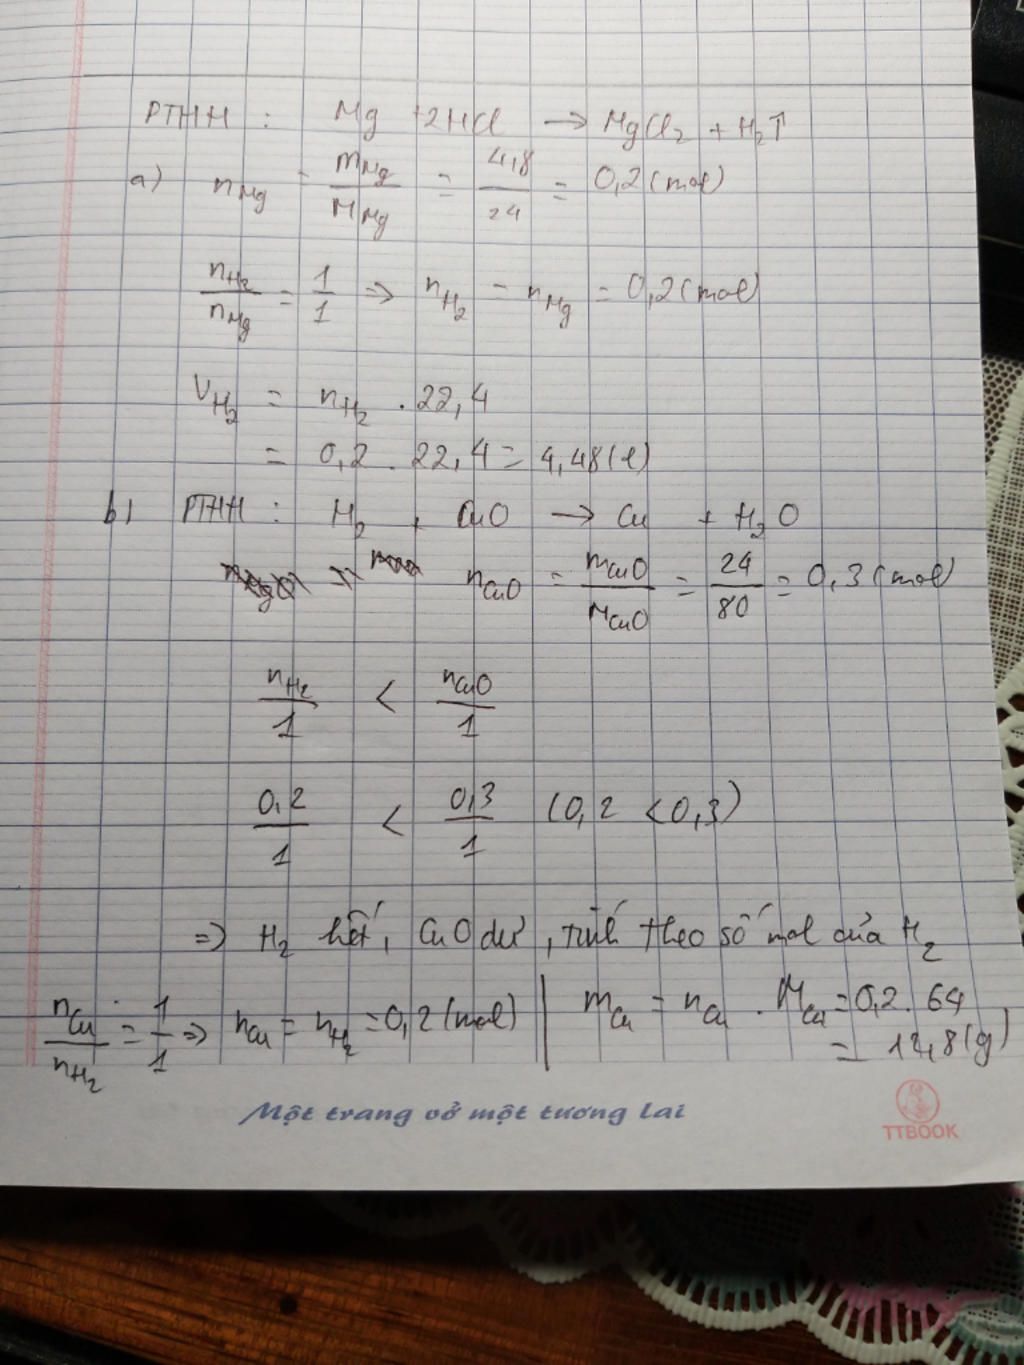 PTHH : Mg + 2HCl → MgCl₂ + H₂↑
a) nMg = mMg/MMg = 4,8/24 = 0,2 (mol)
nH₂/nMg = 1/1 => nH₂ = nMg = 0,2 (mol)
VH₂ = nH₂ . 22,4
= 0,2 . 22,4 = 4,48 (l)
b) PTHH : H₂ + CuO → Cu + H₂O
nCuO = mCuO/MCuO = 24/80 = 0,3 (mol)
nH₂/1 < nCuO/1
0,2/1 < 0,3/1 (0,2 < 0,3)
=> H₂ hết, CuO dư, tính theo số mol của H₂
nCu/nH₂ = 1/1 => nCu = nH₂ = 0,2 (mol) | mCu = nCu . MCu = 0,2 . 64
= 12,8 (g)
Một trang vở một tương lai
TTBOOK